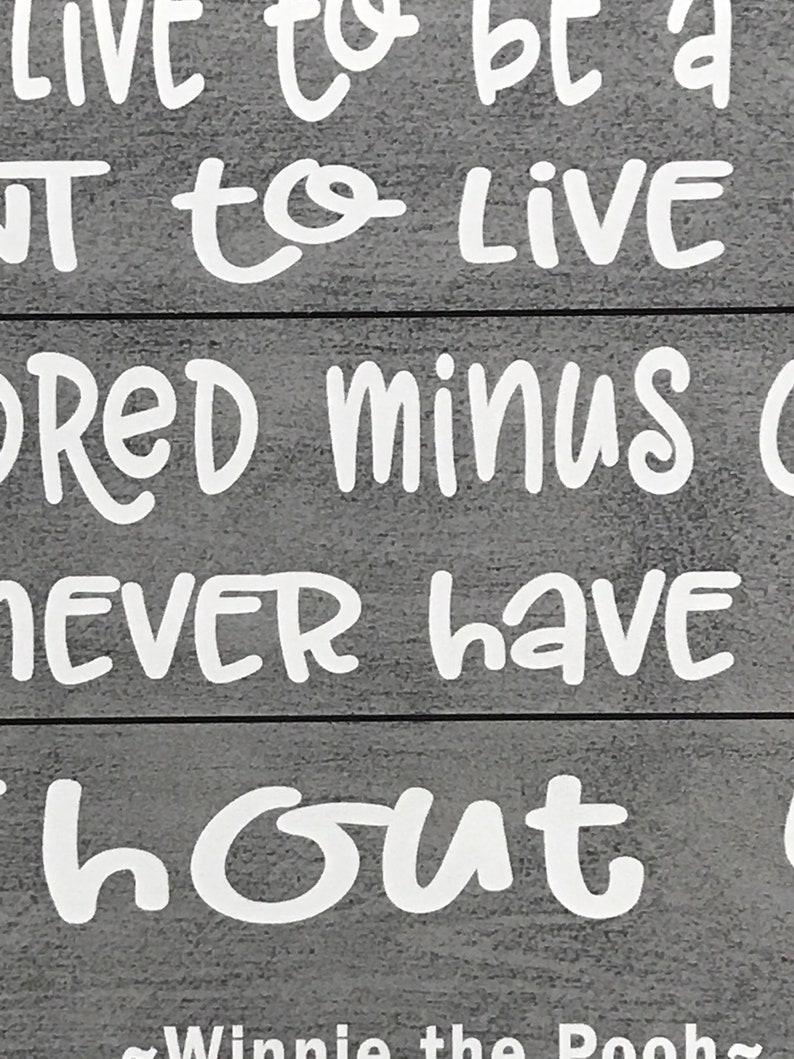 LIVE to be a
NT to LIVE
DRED minus
NEVER have
hout
~Winnie the Pooh~